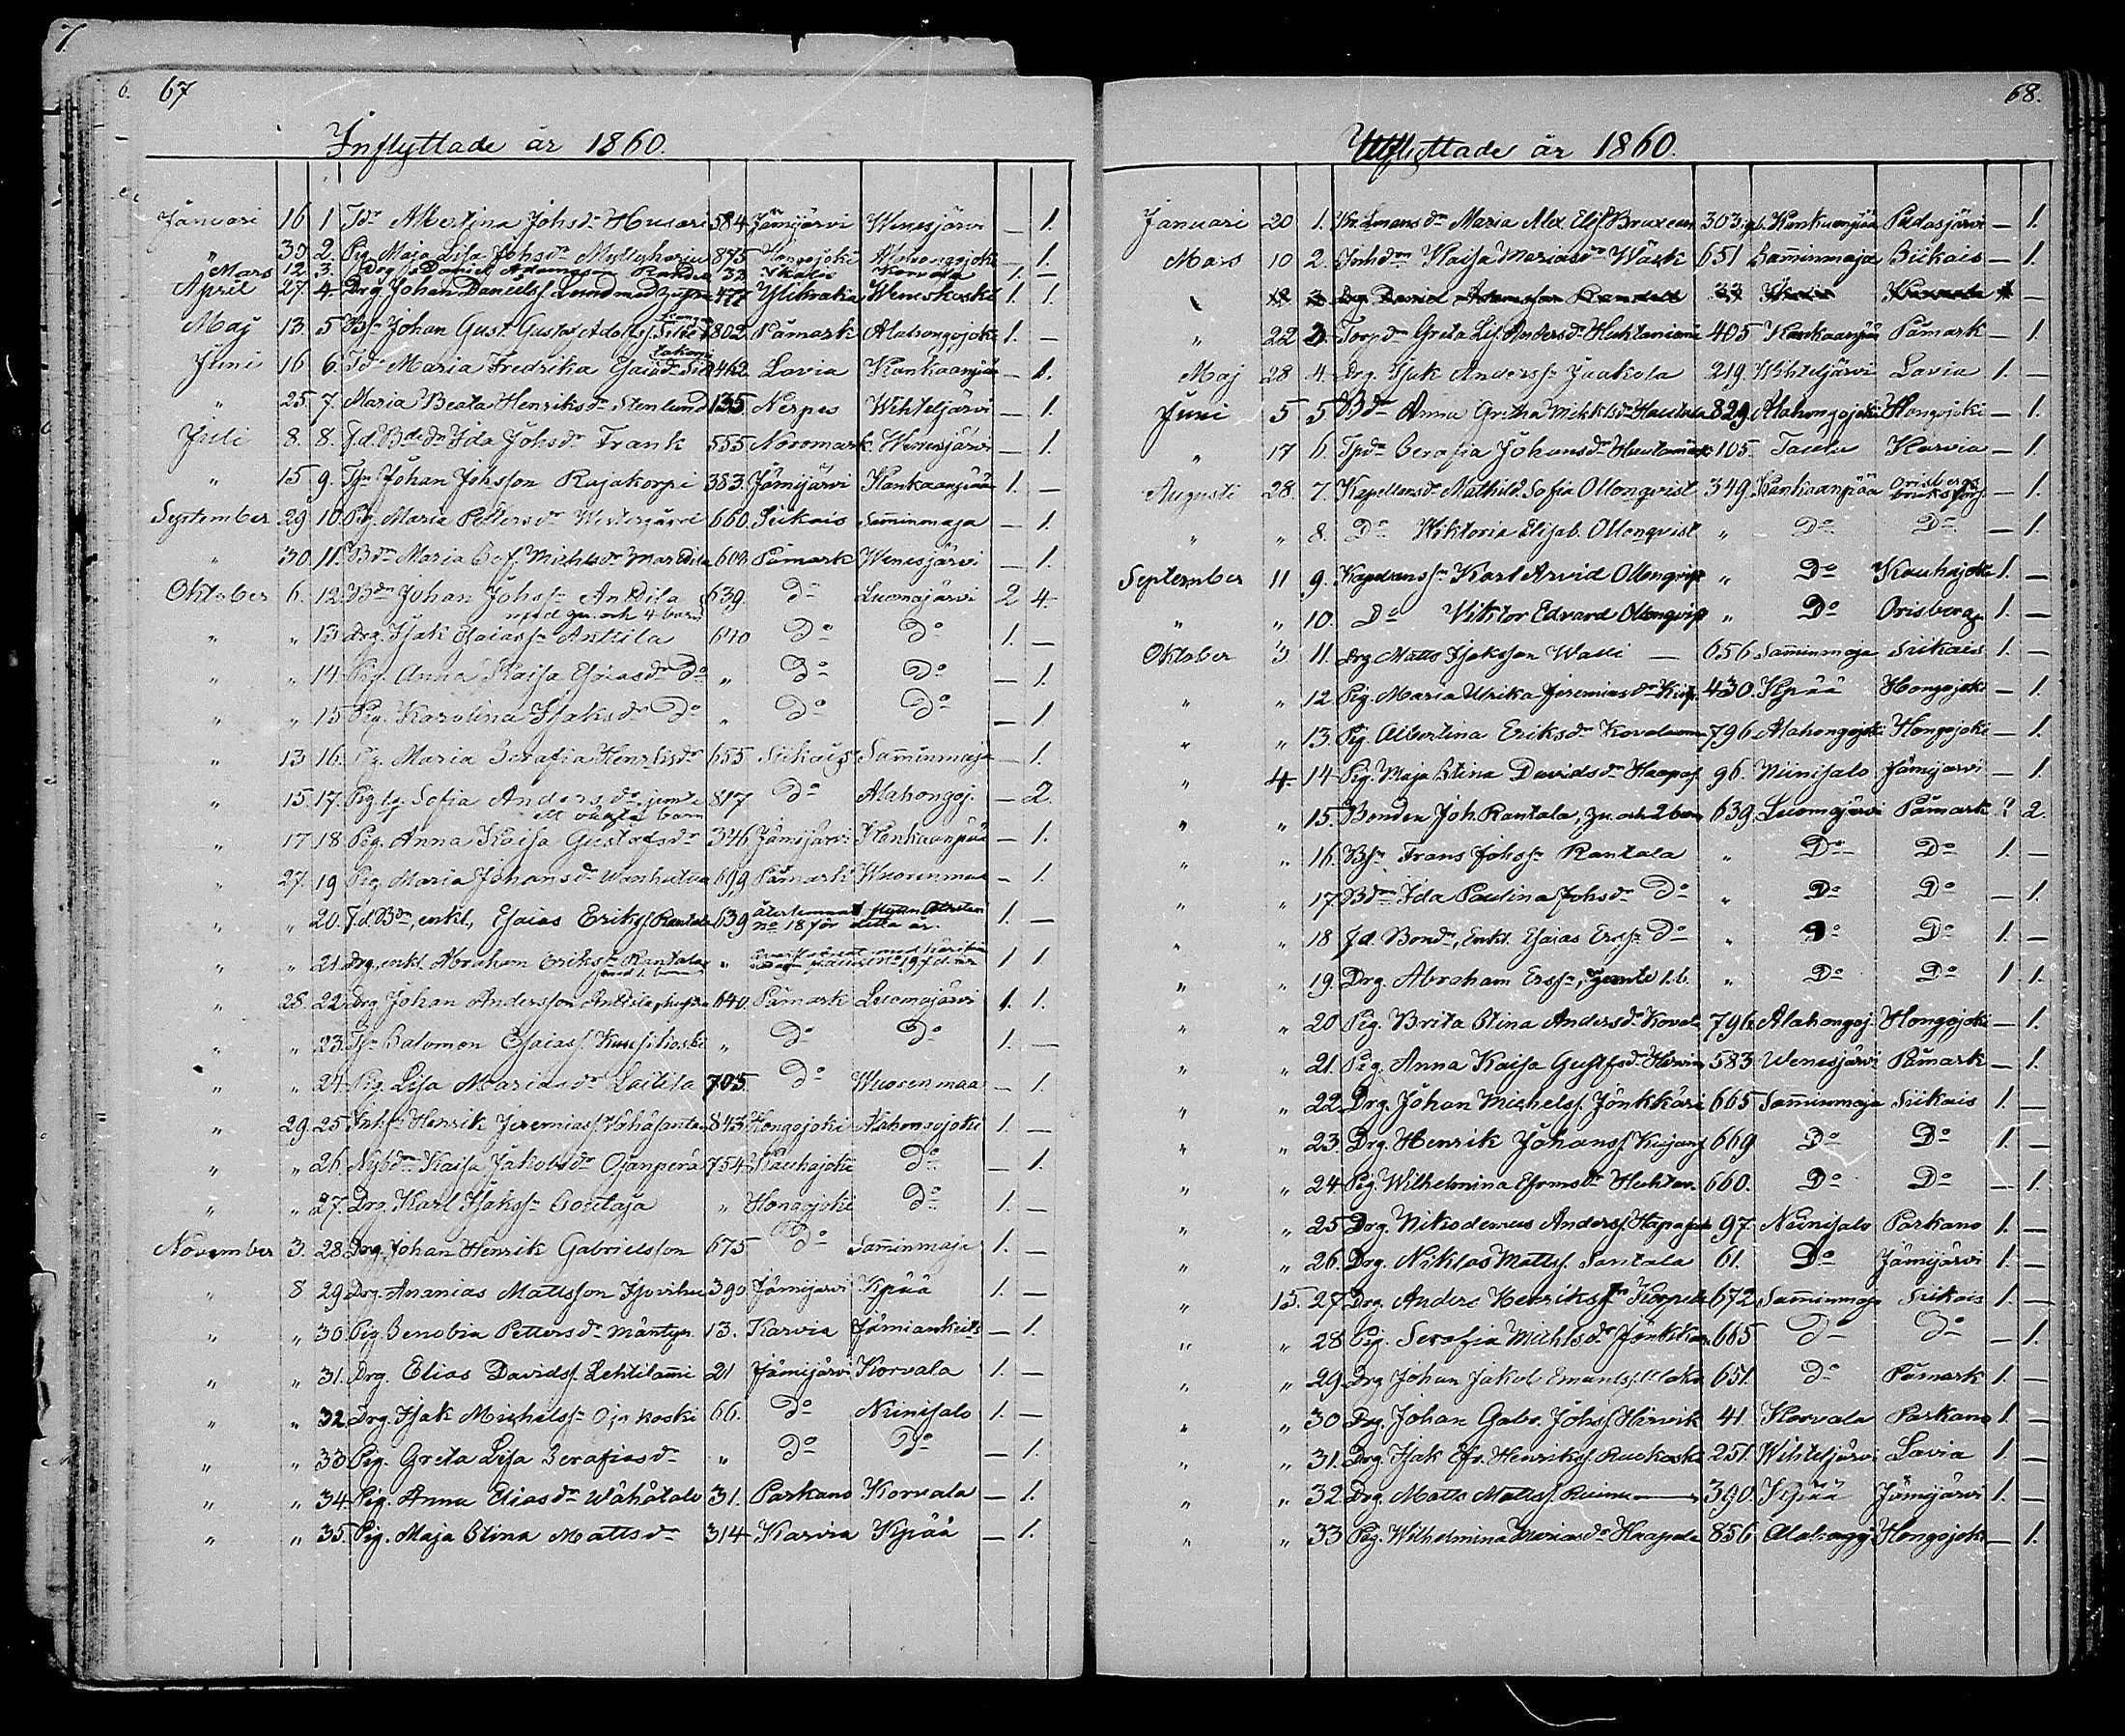 7.
6. 67
Inflyttade år 1860.
Januari 16 1 Tdr Albertina Johsdr Husari 584 Jämijärvi Wenesjärvi — 1.
" 30. 2. Pig. Maja Lisa Johsdr Myllyharju 875 Hongojoki Alahongojoki — 1.
Mars 12. 3. Drg Daniel Adamsson Randel 33 Ikalis Korvala 1. —
April 27. 4. Drg. Johan Daniels. Lundmed hustru 477 Ylikraka Weneskoski 1. 1.
Maj 13. 5 Johan Gust. Gustaf Adolfs. 802. Påmark Alahongojoki 1. —
Juni 16 6. Tdr Maria Fredrika Esaiadr 462. Lavia Kankaanpää — 1.
" 25. 7. Maria Beata Henriksdr Stenlund 135 Nerpes Wihteljärvi — 1.
Juli 8. 8. Ida Johsdr Frank 555 Norrmark Wenesjärvi — 1.
" 15 9. Johan Johsson Rajakorpi 383. Jämijärvi Kankaanpää 1. —
September 29 10. Pig. Maria Pettersdr Westergård 660. Siikais Samminmaja — 1.
" 30. 11. Bdr Maria Sof. Michlsdr Mardila 608 Påmark Wenesjärvi — 1.
Oktober 6. 12. Bdn Johan Johss. Anttila 639. Do Luomajärvi 2 4.
med hu. och 4 barn
" " 13 Drg. Isak Esaiass. Anttila 640 Do Do 1. —
" " 14 Pig. Anna Kaisa Esaiasdr Do " Do Do — 1.
" " 15 Pig. Karolina Isaksdr Do " Do Do — 1
" 13 16. Pig. Maria Serafia Henriksdr 655 Siikais Samminmaja — 1.
" 15. 17. Pig. Sofia Andersdr jemte 817 Do Alahongoj. — 2.
ett oäkta barn
" 17 18 Pig. Anna Kaisa Gustafsdr 346 Jämijärvi Kankaanpää — 1.
" 27. 19 Pig. Maria Johansdr Wanhatua 699 Påmark Wuorenmaa — 1.
" " 20. F.d. Bdn, enkl, Esaias Eriks. Rantala 639 återlemnat flyttn Attesten 1. —
no 18 för detta år.
" " 21. Drg, enkl. Abraham Erikss. Rantala " no 19 f. d. år 1 1
med 1. barn
" 28. 22. Drg Johan Andersson Anttila, hustru 640. Påmark Luomajärvi 1. 1.
" " 23. Salomon Esaias. Kuusikoski " Do Do 1. —
" " 24 Pig. Lisa Mariasdr Laitila 705 Do Wuorenmaa — 1.
" 29. 25. Henrik Jeremias. 843. Hongojoki Alahongojoki 1. —
" " 26 Nybdr Kaisa Jakobsdr Ojanperä 754 Kauhajoki Do — 1.
" " 27. Drg. Karl Isakss. " Hongojoki Do 1. —
November 3. 28. Drg. Johan Henrik Gabrielsson 675 Do Samminmaja 1. —
" 8 29. Drg. Ananias Mattsson 390. Jämijärvi Kpää 1. —
" " 30. Pig. Senobia Pettersdr Mäntyn. 13. Karvia Jämiankeits — 1.
" " 31. Drg. Elias Davids. Lehtilammi 21 Jämijärvi Korvala 1. —
" " 32. Drg. Isak Michelss. Ojakoski 66. Do Niinisalo 1. —
" " 33 Pig. Greta Lisa Serafiasdr " Do Do — 1.
" " 34 Pig. Anna Eliasdr Wähätalo 31. Parkano Korvala — 1.
" " 35. Pig. Maja Stina Mattsdr 314 Karvia Kpää — 1.
68.
Utflyttade år 1860.
Januari 20 1. Kr. Lmansdr Maria Alex. Elis. Bruxeen 303. Kankaanpää Padasjärvi — 1.
Mars 10 2. Kaisa Mariasdr Wärk 651 Samminmaja Siikais — 1.
" 18 3. Drg. David Adamsson Randell 33 —
" 22 3. Torpdr Greta Lis. Andersdr Huhtaniemi 405 Kankaanpää Påmark — 1.
Maj 28 4. Drg. Isak Anderss. Jaakola 219. Wihteljärvi Lavia 1. —
Juni 5 5 Bdr Anna Gretha Mikkelsdr Hautala 829. Alahongojoki Hongojoki — 1.
" 17 6. Tpdr Serafia Johansdr Hautamäki 105. Taulu Karvia — 1.
Augusti 28. 7. Kapellansdr Mathild Sofia Ollonqvist 349. Kankaanpää Orisbergs bruksförs. — 1.
" " 8. Do Wiktoria Elisab. Ollonqvist " Do Do — 1.
September 11 9. Kapellans sn Karl Arvid Ollonqvist " Do Kauhajoki 1. —
" " 10. Do Viktor Edvard Ollonqvist " Do Orisberg 1. —
Oktober 3 11. Drg Matts Isaksson Walli — 656 Samminmaja Siikais 1. —
" " 12. Pig. Maria Ulrika Jeremiasdr 430. Kpää Hongojoki — 1.
" " 13. Pig. Albertina Eriksdr 796 Alahongojoki Hongojoki — 1.
" 4. 14 Pig. Maja Stina Davidsdr 96. Niinisalo Jämijärvi — 1.
" " 15. Bonden Joh. Rantala, hu. och 2 barn 639. Luomajärvi Påmark 2 2.
" " 16. Frans Johss. Rantala " Do Do 1. —
" " 17. Bdr Ida Paulina Johsdr Do " Do Do — 1.
" " 18 f.d. Bondn, Enkl. Esaias Erss. Do " Do Do 1. —
" " 19. Drg. Abraham Erss., jemte 1. b. " Do Do 1 1.
" " 20 Pig. Brita Stina Andersdr 796. Alahongoj. Hongojoki — 1.
" " 21. Pig. Anna Kaisa Gustfsdr 583 Wenesjärvi Påmark — 1.
" " 22. Drg. Johan Michels. Jönkkäri 665 Samminmaja Siikais 1. —
" " 23. Drg. Henrik Johans. 669 Do Do 1. —
" " 24 Pig. Wilhelmina 660. Do Do — 1.
" " 25 Drg. Nikodemus Anders. 97. Niinisalo Parkano 1. —
" " 26. Drg. Niklas Matts. Santala 61. Do Jämijärvi 1. —
" 15. 27. Drg. Anders Henrikss. Korpela 672 Samminmaja Siikais 1. —
" " 28 Pig. Serafia Michlsdr 665 Do Do — 1.
" " 29 Drg. Johan Jakob 651. Do Påmark 1. —
" " 30 Drg. Johan Gabr. Johs. Hirvik 41. Korvala Parkano 1. —
" " 31. Drg. Isak Efr. Henriks. Ruokoski 251. Wihteljärvi Lavia 1. —
" " 32. Drg. Matts Matts. 390. Kpää Jämijärvi 1. —
" " 33 Pig. Wilhelmina Mariasdr Haapala 856 Hongojoki — 1.